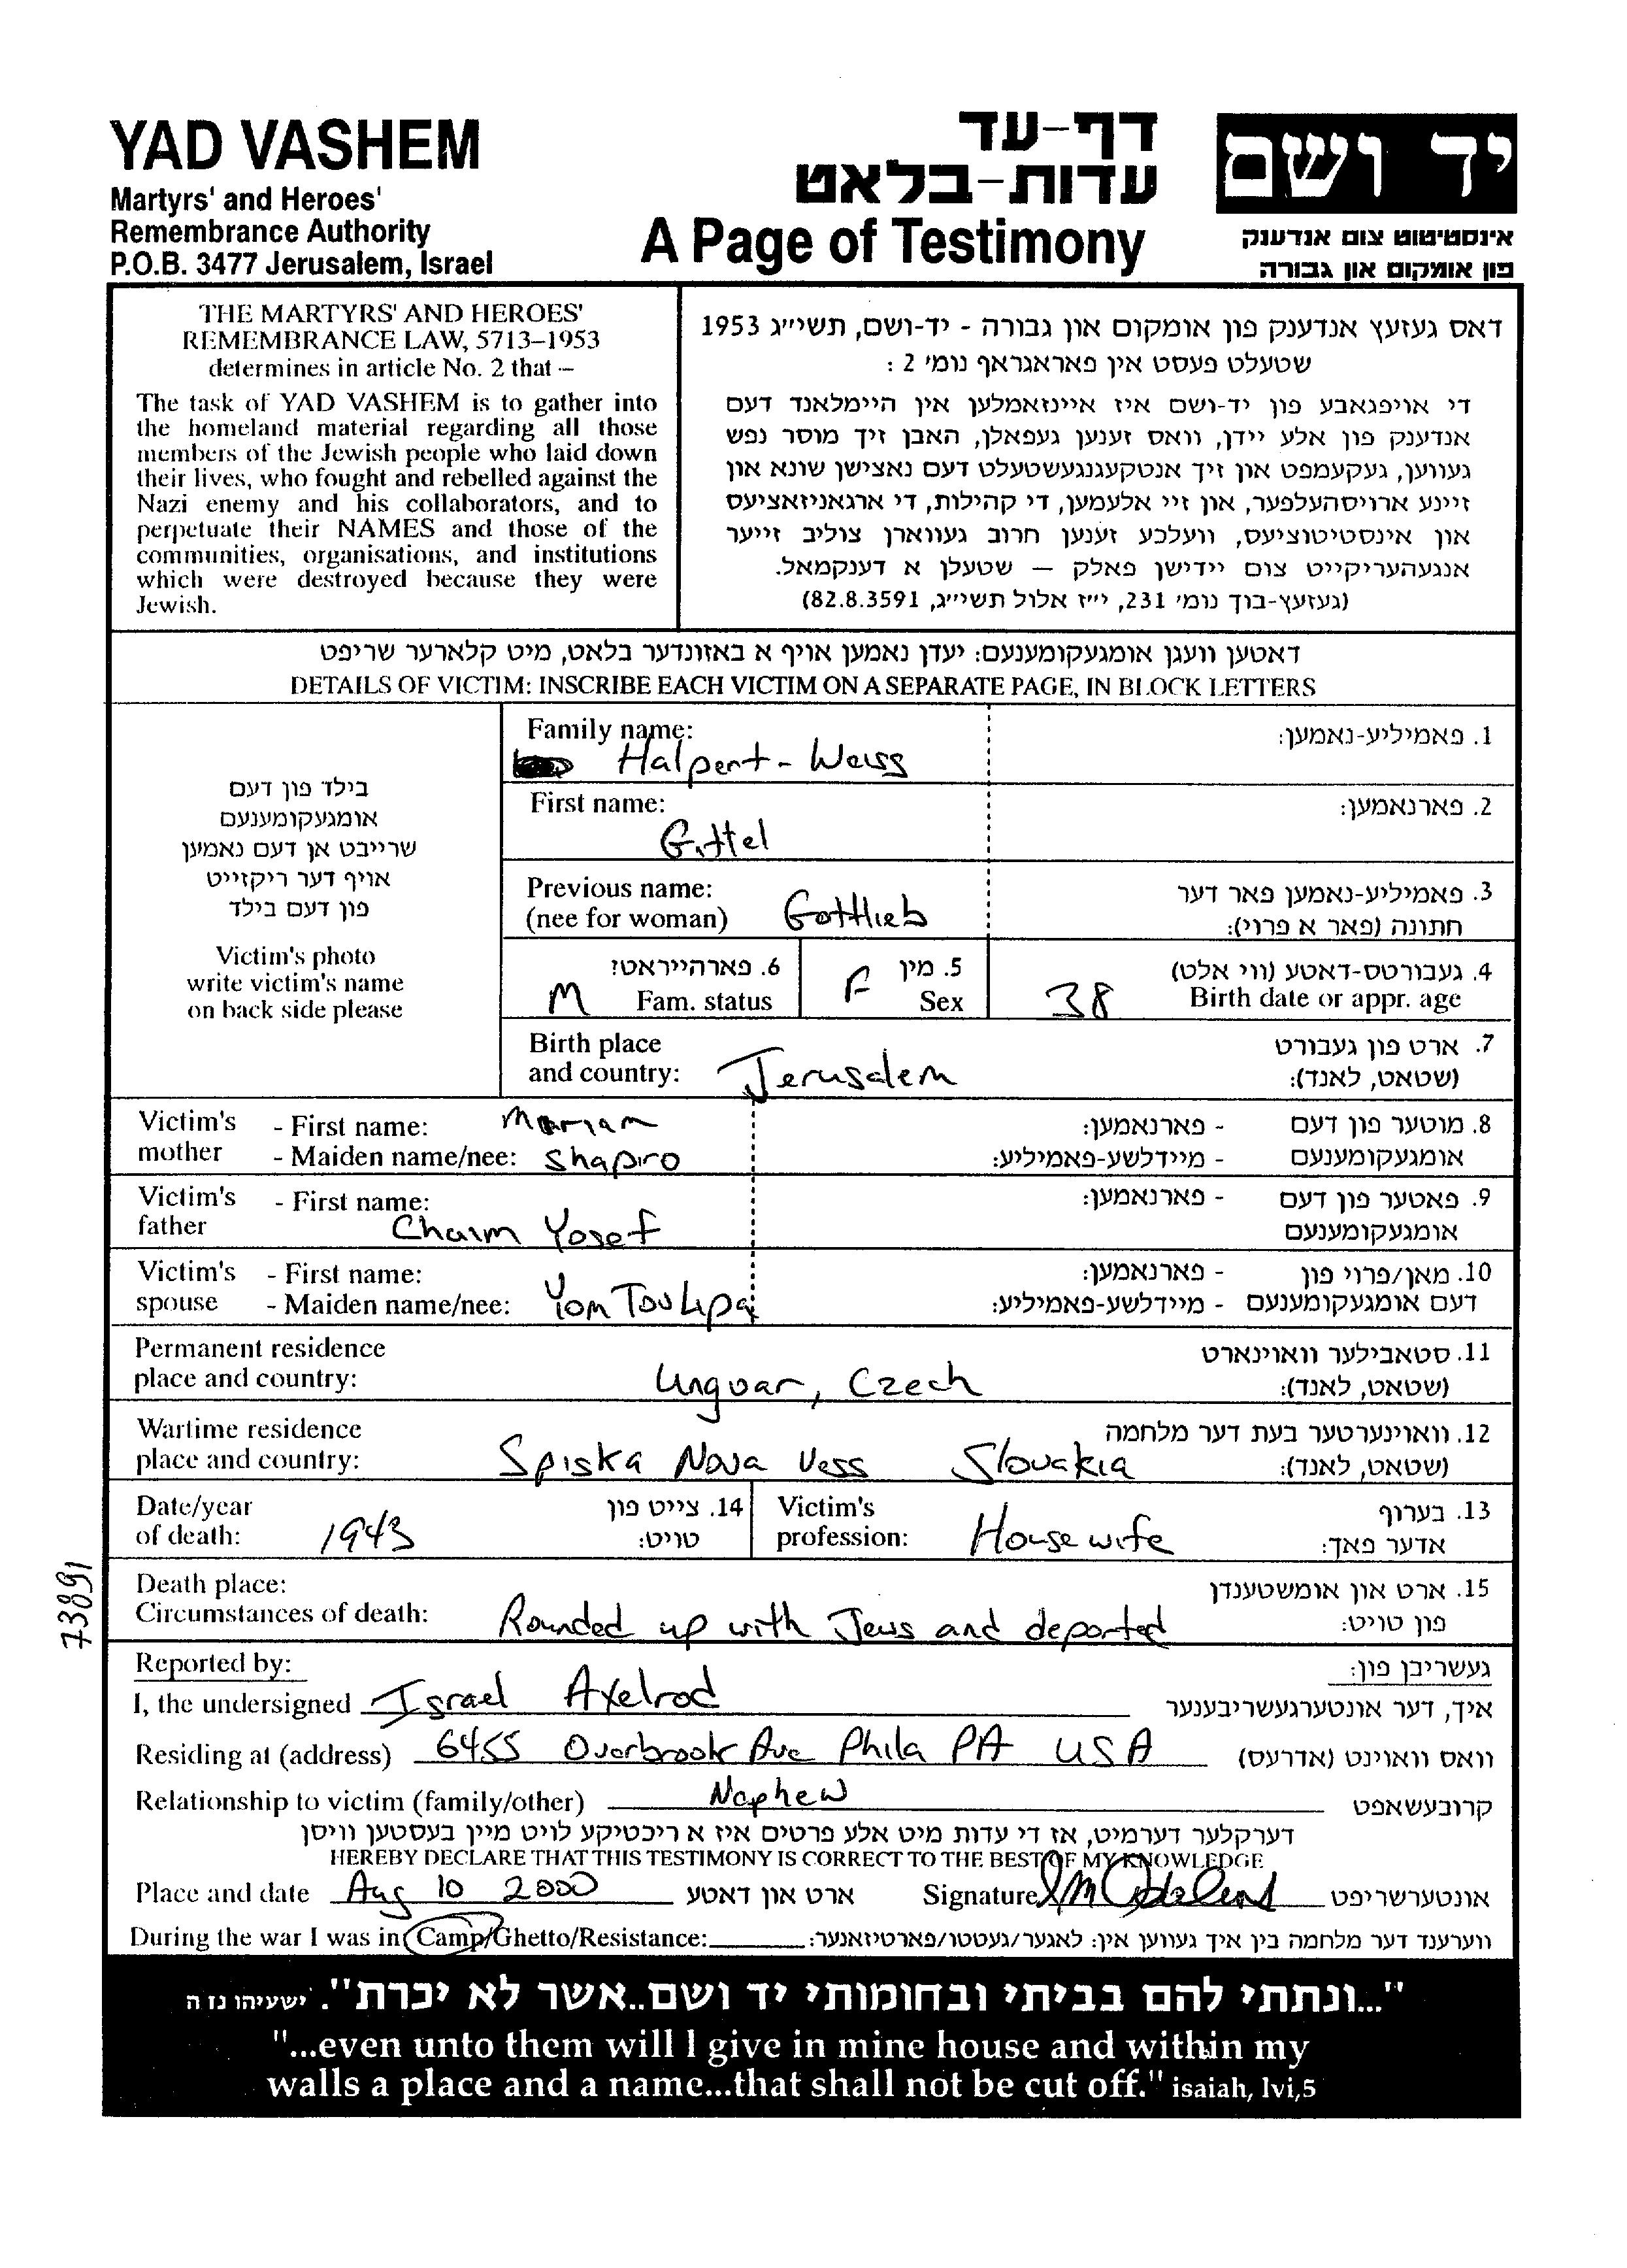 YAD VASHEM
Martyrs' and Heroes'
Remembrance Authority
P.O.B. 3477 Jerusalem, Israel
דף-עד
עדות-בלאט
A Page of Testimony
יד ושם
אינסטיטוט צום אנדענק
פון אומקום און גבורה
THE MARTYRS' AND HEROES'
REMEMBRANCE LAW, 5713–1953
determines in article No. 2 that –
The task of YAD VASHEM is to gather into
the homeland material regarding all those
members of the Jewish people who laid down
their lives, who fought and rebelled against the
Nazi enemy and his collaborators, and to
perpetuate their NAMES and those of the
communities, organisations, and institutions
which were destroyed because they were
Jewish.
דאס געזעץ אנדענק פון אומקום און גבורה - יד-ושם, תשי״ג 1953
שטעלט פעסט אין פאראגראף נומ׳ 2 :
די אויפגאבע פון יד-ושם איז איינזאמלען אין היימלאנד דעם
אנדענק פון אלע יידן, וואס זענען געפאלן, האבן זיך מוסר נפש
געווען, געקעמפט און זיך אנטקעגנגעשטעלט דעם נאצישן שונא און
זיינע ארויסהעלפער, און זיי אלעמען, די קהילות, די ארגאניזאציעס
און אינסטיטוציעס, וועלכע זענען חרוב געווארן צוליב זייער
אנגעהעריקייט צום יידישן פאלק — שטעלן א דענקמאל.
(געזעץ-בוך נומ׳ 231, י״ז אלול תשי״ג, 82.8.3591)
דאטען וועגן אומגעקומענעם: יעדן נאמען אויף א באזונדער בלאט, מיט קלארער שריפט
DETAILS OF VICTIM: INSCRIBE EACH VICTIM ON A SEPARATE PAGE, IN BLOCK LETTERS
בילד פון דעם
אומגעקומענעם
שרייבט אן דעם נאמען
אויף דער ריקזייט
פון דעם בילד
Victim's photo
write victim's name
on back side please
Family name: 1. פאמיליע-נאמען:
Halpert - Weiss
First name: 2. פארנאמען:
Gittel
Previous name: 3. פאמיליע-נאמען פאר דער
(nee for woman) Gottlieb חתונה (פאר א פרוי):
6. פארהייראט? 5. מין 4. געבורטס-דאטע (ווי אלט)
M Fam. status F Sex 38 Birth date or appr. age
Birth place 7. ארט פון געבורט
and country: Jerusalem (שטאט, לאנד):
Victim's - First name: Mariam - פארנאמען: 8. מוטער פון דעם
mother - Maiden name/nee: Shapiro - מיידלשע-פאמיליע: אומגעקומענעם
Victim's - First name: - פארנאמען: 9. פאטער פון דעם
father Chaim Yosef אומגעקומענעם
Victim's - First name: - פארנאמען: 10. מאן/פרוי פון
spouse - Maiden name/nee: Yom Tov Lipa - מיידלשע-פאמיליע: דעם אומגעקומענעם
Permanent residence 11. סטאבילער וואוינארט
place and country: Ungvar, Czech (שטאט, לאנד):
Wartime residence 12. וואוינערטער בעת דער מלחמה
place and country: Spiska Nova Vess Slovakia (שטאט, לאנד):
Date/year 14. צייט פון Victim's 13. בערוף
of death: 1943 טויט: profession: Housewife אדער פאך:
Death place: 15. ארט און אומשטענדן
Circumstances of death: Rounded up with Jews and deported פון טויט:
73891
Reported by: געשריבן פון:
I, the undersigned Israel Axelrod איך, דער אונטערגעשריבענער
Residing at (address) 6455 Overbrook Ave Phila PA USA וואס וואוינט (אדרעס)
Relationship to victim (family/other) Nephew קרובעשאפט
דערקלער דערמיט, אז די עדות מיט אלע פרטים איז א ריכטיקע לויט מיין בעסטען וויסן
HEREBY DECLARE THAT THIS TESTIMONY IS CORRECT TO THE BEST OF MY KNOWLEDGE
Place and date Aug 10 2000 ארט און דאטע Signature אונטערשריפט
During the war I was in Camp/Ghetto/Resistance: ווערענד דער מלחמה בין איך געווען אין: לאגער/געטטו/פארטיזאנער:
"...ונתתי להם בביתי ובחומותי יד ושם..אשר לא יכרת". ישעיהו נז ה
"...even unto them will I give in mine house and within my
walls a place and a name...that shall not be cut off." isaiah, lvi,5